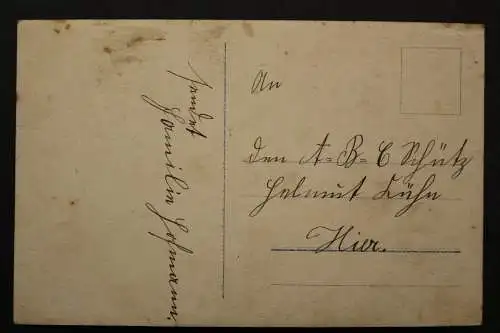 sendet
Familie Hofmann.
An
den A-B-C Schütz
Helmut Kühn
Hier.